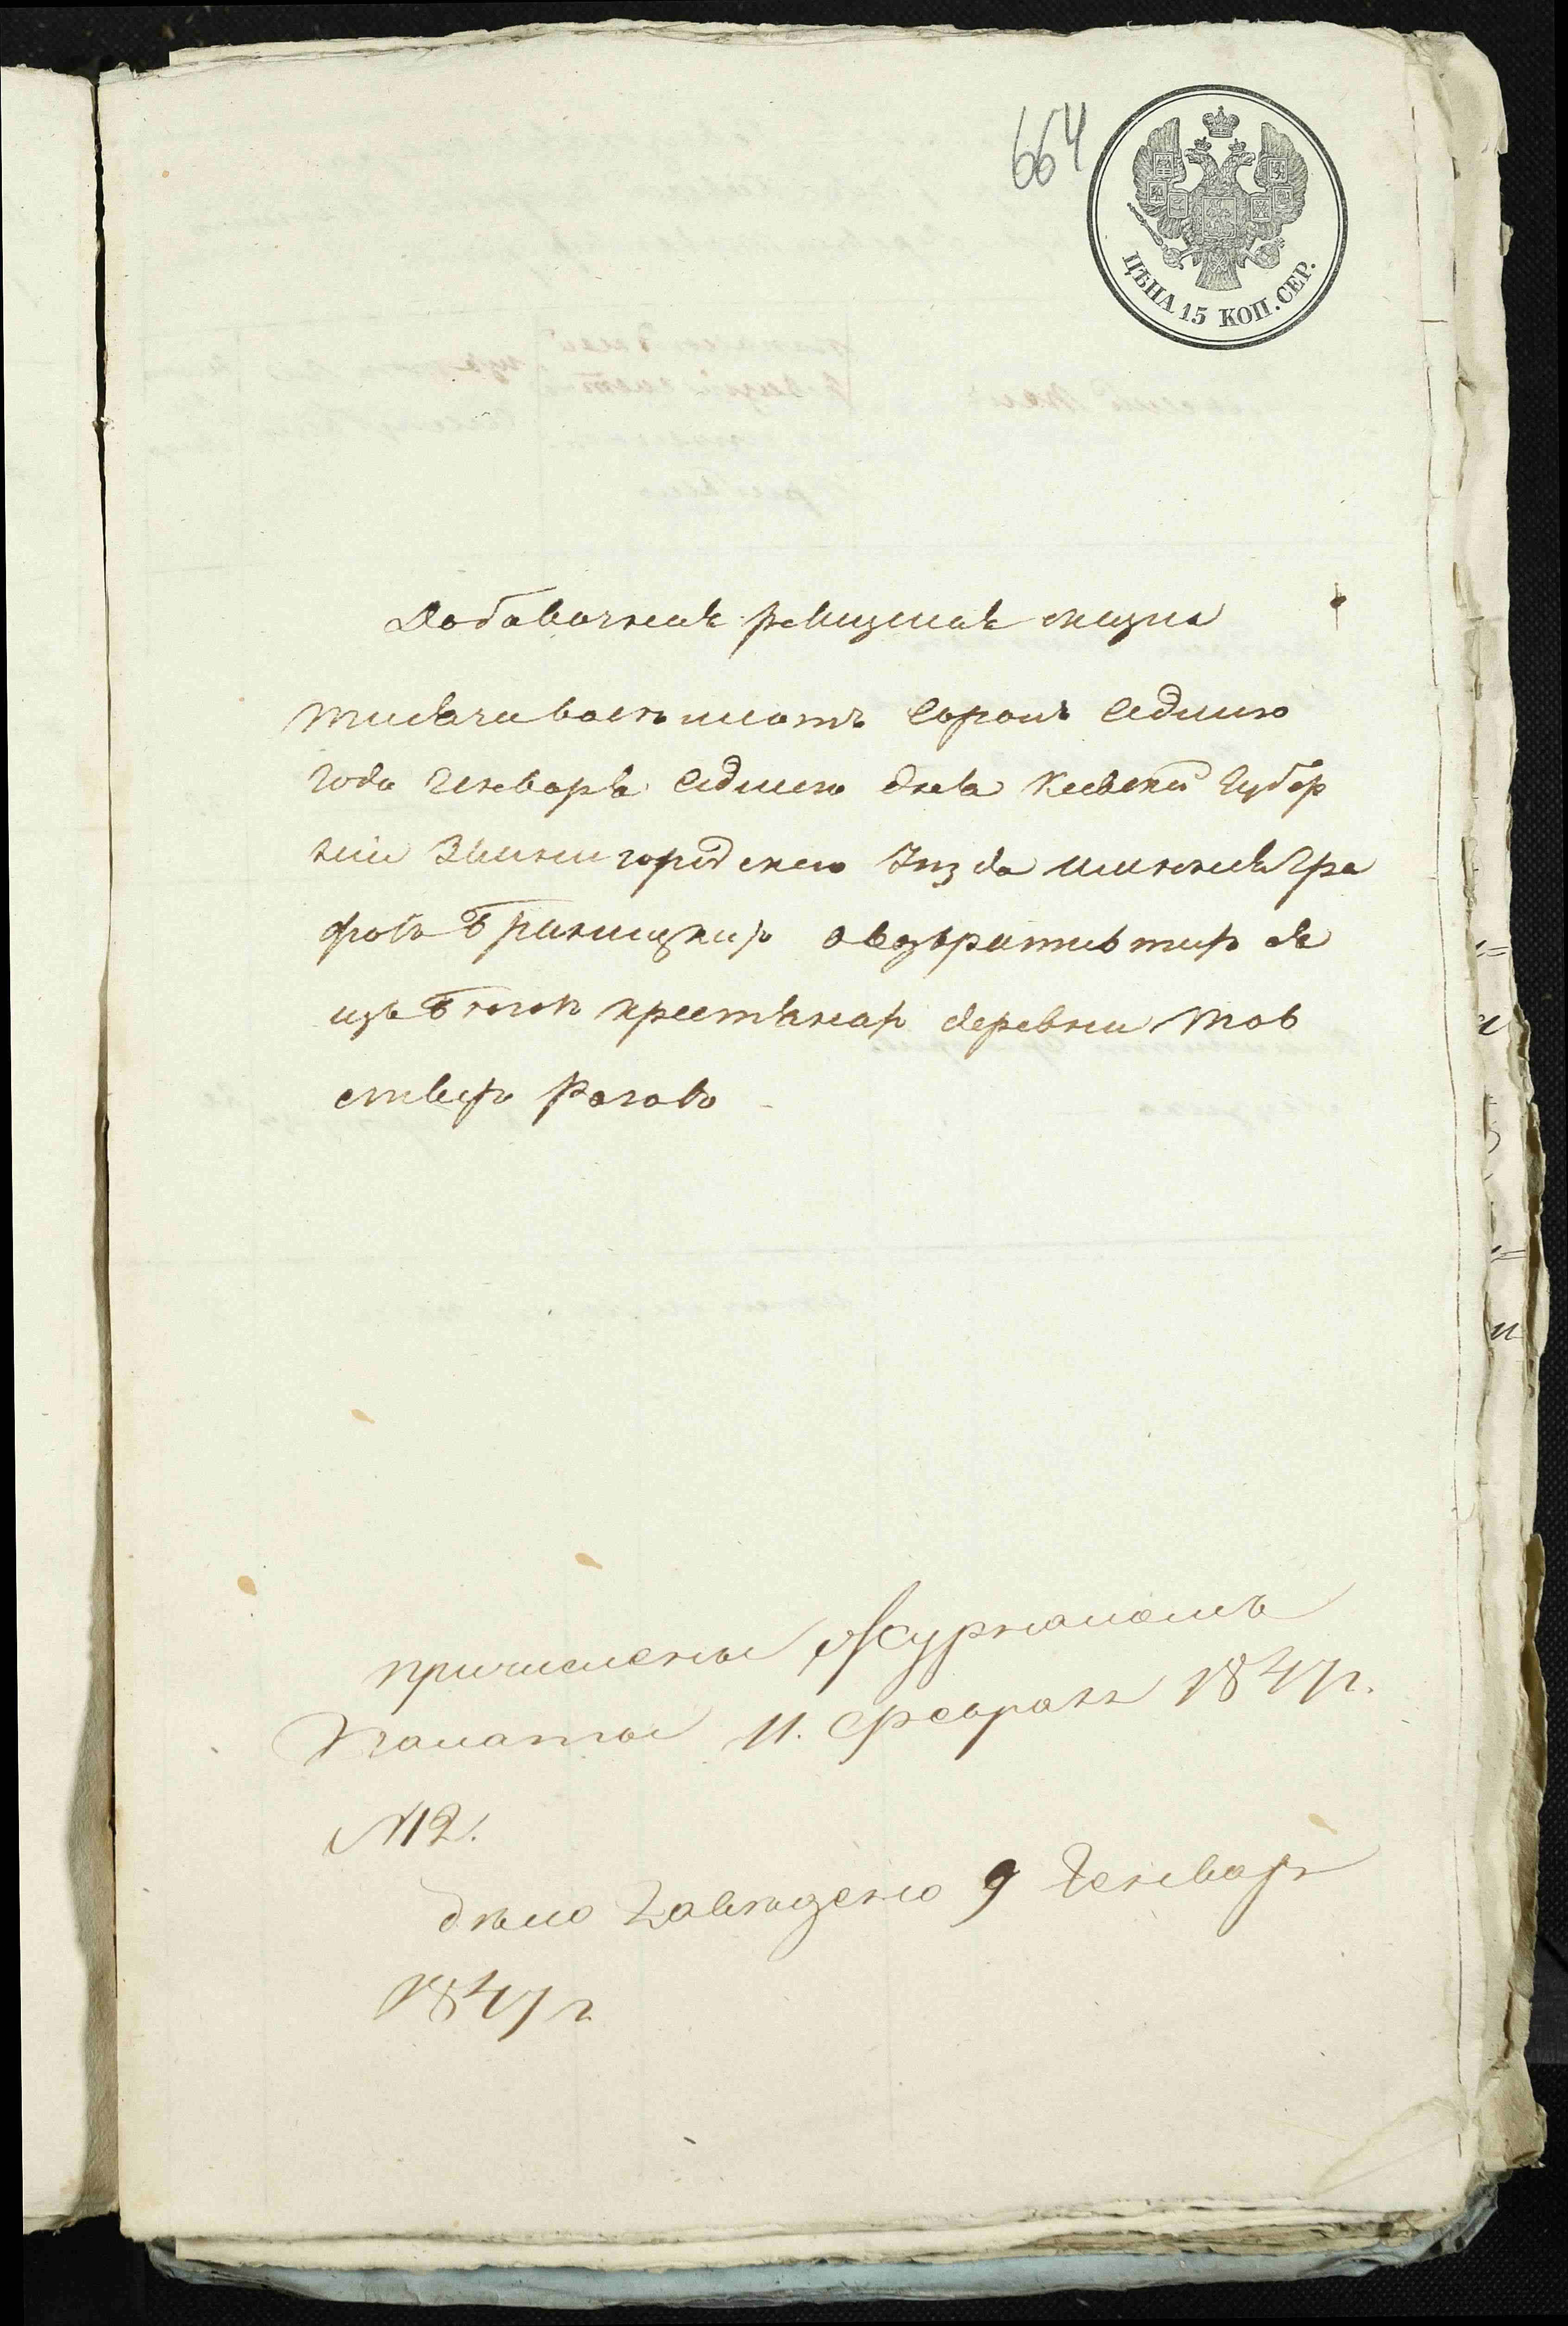 664
ЦѢНА 15 КОП. СЕР.
Добавочная ревизская сказка
тисяча восемъ сотъ сорокъ седмого
года Генваря седмого дня Киевской Губер
нии Звенигородского Уизда имения Гра
фовъ Браницкихъ овозвратившихся
изъ Бегов крестянах деревни Тов
стыхъ Рогов
причислены Журналомъ
Палаты 11. февраля 1847 г.
№ 12.
дѣло заведено 9 Генваря
1847 г